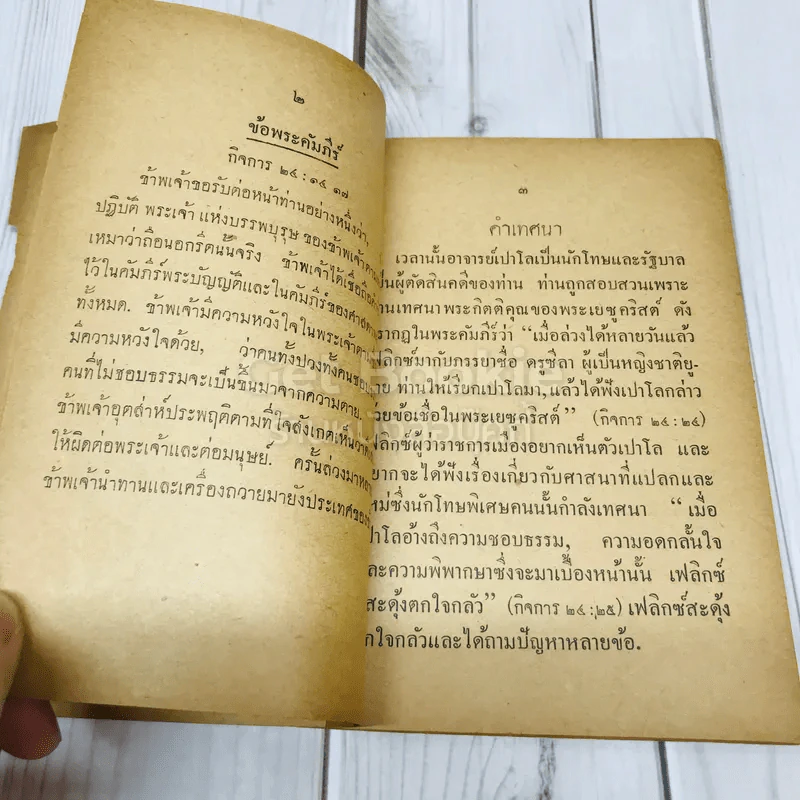 ๒
ข้อพระคัมภีร์
กิจการ ๒๔ : ๑๔ ๑๗
ข้าพเจ้าขอรับต่อหน้าท่านอย่างหนึ่งว่า,
ปฏิบัติ พระเจ้า แห่งบรรพบุรุษ ของข้าพเจ้าตาม
เหมาว่าถือนอกรีตนั้นจริง ข้าพเจ้าได้เชื่อถือ
ไว้ในคัมภีร์พระบัญญัติและในคัมภีร์ของศาสดา
ทั้งหมด. ข้าพเจ้ามีความหวังใจในพระเจ้าตาม
มีความหวังใจด้วย, ว่าคนทั้งปวงทั้งคนชอบ
คนที่ไม่ชอบธรรมจะเป็นขึ้นมาจากความตาย.
ข้าพเจ้าอุตส่าห์ประพฤติตามที่ใจสังเกตเห็นว่า
ให้ผิดต่อพระเจ้าและต่อมนุษย์. ครั้นล่วงมา
ข้าพเจ้านำทานและเครื่องถวายมายังประเทศของ
๓
คำเทศนา
เวลานั้นอาจารย์เปาโลเป็นนักโทษและรัฐบาล
เป็นผู้ตัดสินคดีของท่าน ท่านถูกสอบสวนเพราะ
ท่านเทศนาพระกิตติคุณของพระเยซูคริสต์ ดัง
รากฏในพระคัมภีร์ว่า “เมื่อล่วงได้หลายวันแล้ว
ฟลิกซ์มากับภรรยาชื่อ ดรูซีลา ผู้เป็นหญิงชาติยู-
าย ท่านให้เรียกเปาโลมา, แล้วได้ฟังเปาโลกล่าว
วยข้อเชื่อในพระเยซูคริสต์” (กิจการ ๒๔ : ๒๔)
ฟลิกซ์ผู้ว่าราชการเมืองอยากเห็นตัวเปาโล และ
ยากจะได้ฟังเรื่องเกี่ยวกับศาสนาที่แปลกและ
หม่ซึ่งนักโทษพิเศษคนนั้นกำลังเทศนา “เมื่อ
ปาโลอ้างถึงความชอบธรรม, ความอดกลั้นใจ
ละความพิพากษาซึ่งจะมาเบื้องหน้านั้น เฟลิกซ์
สะดุ้งตกใจกลัว” (กิจการ ๒๔ : ๒๕) เฟลิกซ์สะดุ้ง
กใจกลัวและได้ถามปัญหาหลายข้อ.